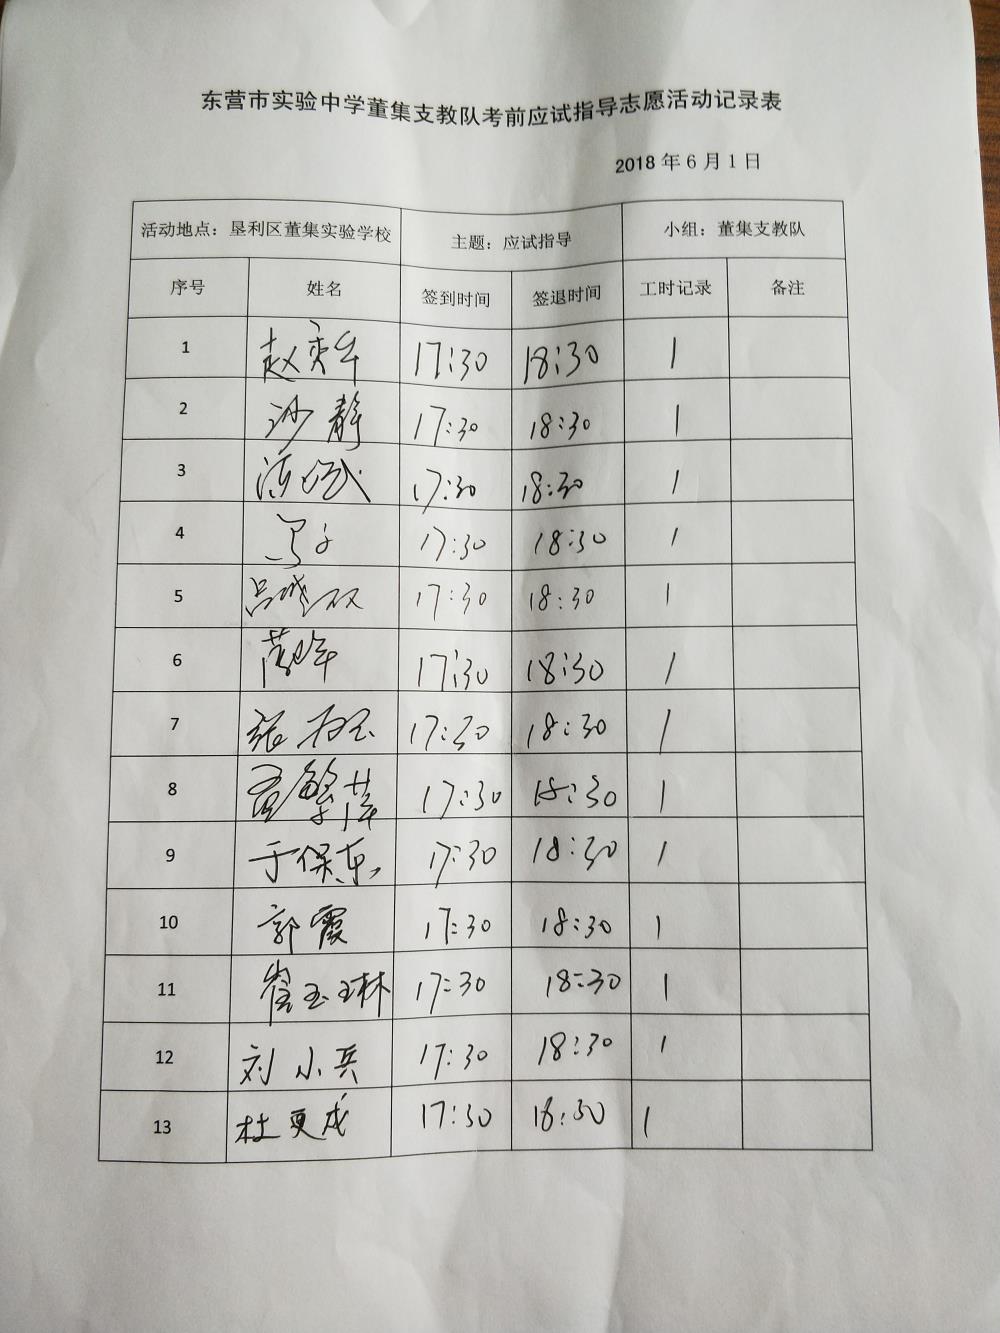 东营市实验中学董集支教队考前应试指导志愿活动记录表
2018 年 6 月 1 日
活动地点：垦利区董集实验学校 主题：应试指导 小组：董集支教队
序号 姓名 签到时间 签退时间 工时记录 备注
1 赵奕华 17:30 18:30 1
2 沙静 17:30 18:30 1
3 17:30 18:30 1
4 17:30 18:30 1
5 17:30 18:30 1
6 17:30 18:30 1
7 张 17:30 18:30 1
8 17:30 18:30 1
9 于保东 17:30 18:30 1
10 郭霞 17:30 18:30 1
11 崔玉琳 17:30 18:30 1
12 刘小兵 17:30 18:30 1
13 杜更成 17:30 18:30 1